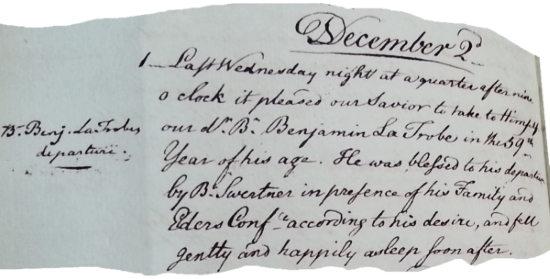 December 2d
1 — Last Wednesday night at a quarter after nine
o clock it pleased our Savior to take to Himself
Br. Benj. La Trobes
our dr. Br. Benjamin La Trobe in the 59th
departure.
Year of his age. He was blessed to his departure
by Br. Swertner in presence of his Family and
Elders Confce according to his desire, and fell
gently and happily asleep soon after.